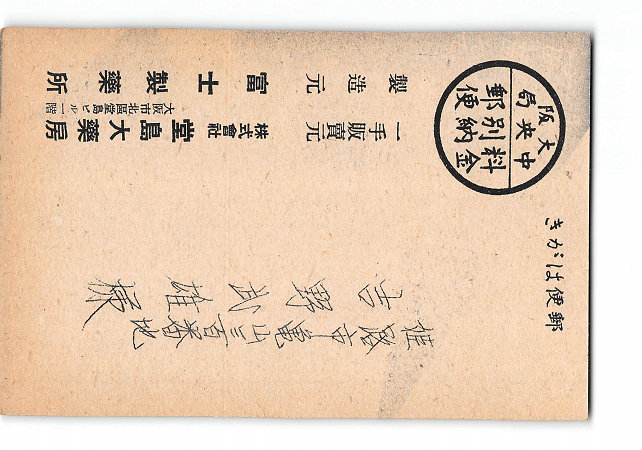 郵便はがき
大阪中央局
料金別納郵便
姫路市亀山三百番地
吉野武雄様
製造元 富士製藥所
大阪市北區堂島ビル一階
一手販賣元 株式會社 堂島大藥房